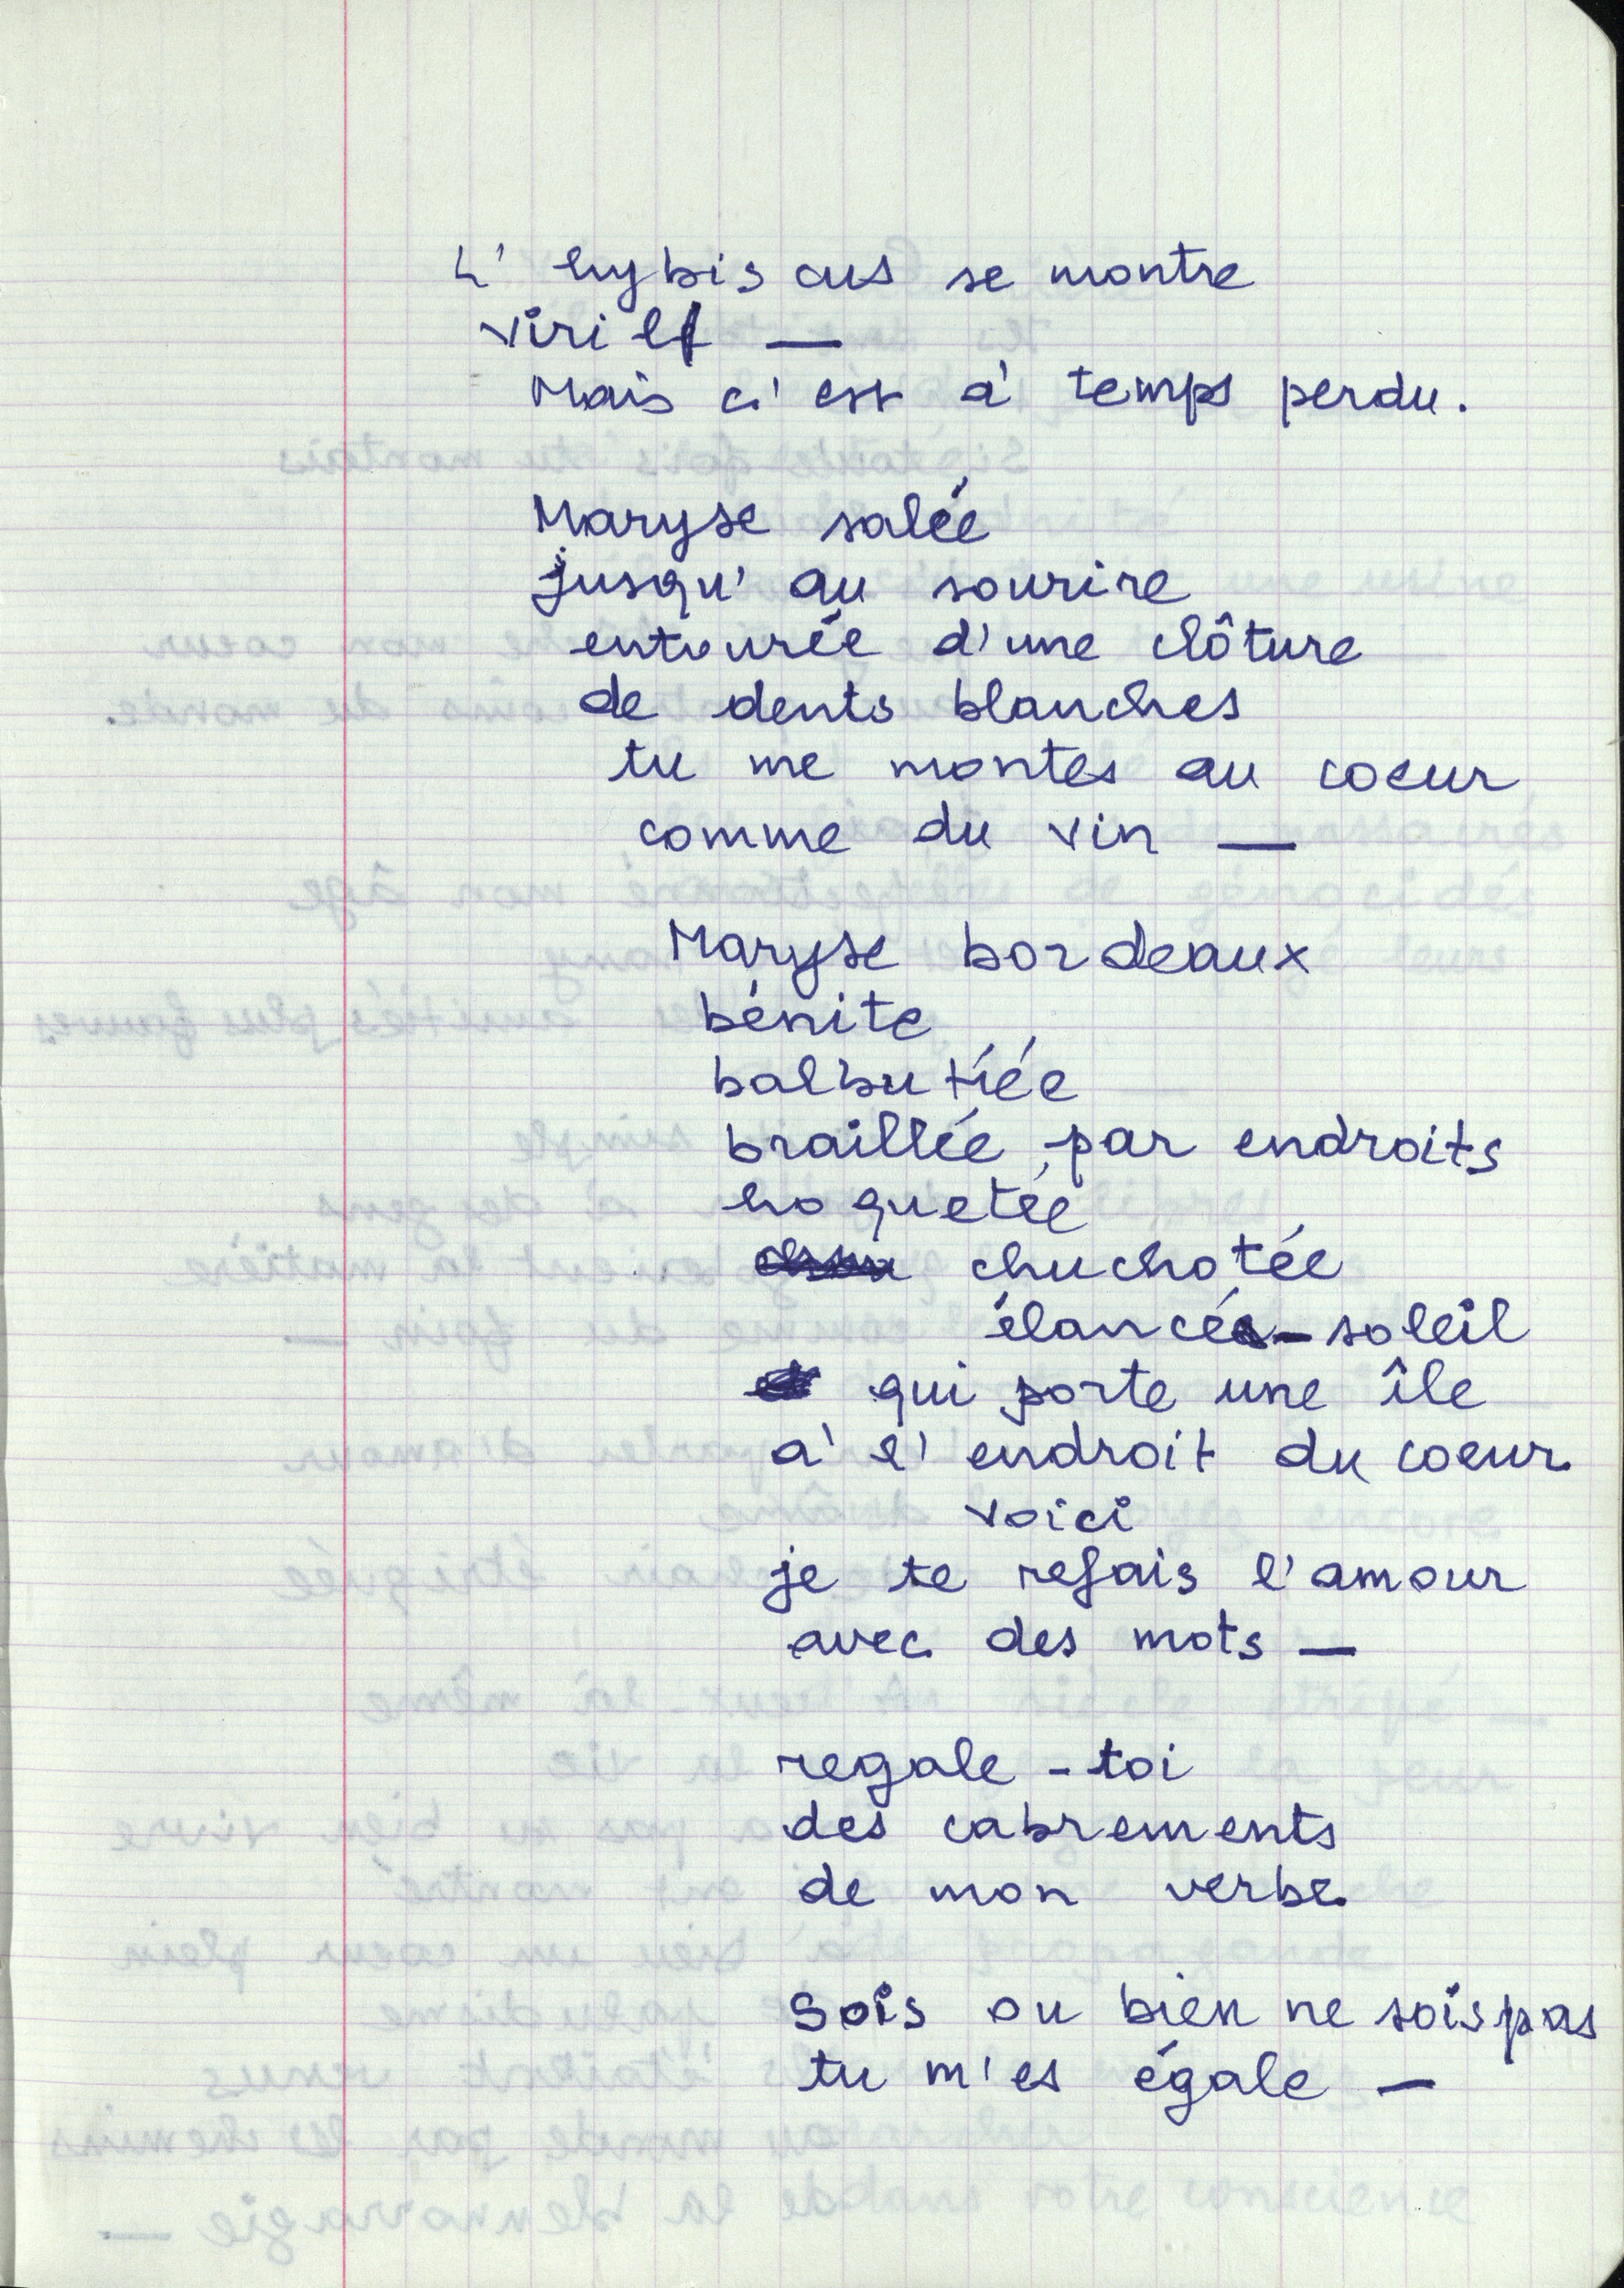 L'hybiscus se montre
viril —
Mais c'est à temps perdu.
Maryse salée
jusqu'au sourire
entourée d'une clôture
de dents blanches
tu me montes au coeur
comme du vin —
Maryse bordeaux
bénite
balbutiée
braillée par endroits
hoquetée
chuchotée
élancée-soleil
qui porte une île
à l'endroit du coeur
voici
je te refais l'amour
avec des mots —
regale-toi
des cabrements
de mon verbe
Sois ou bien ne sois pas
tu m'es égale —